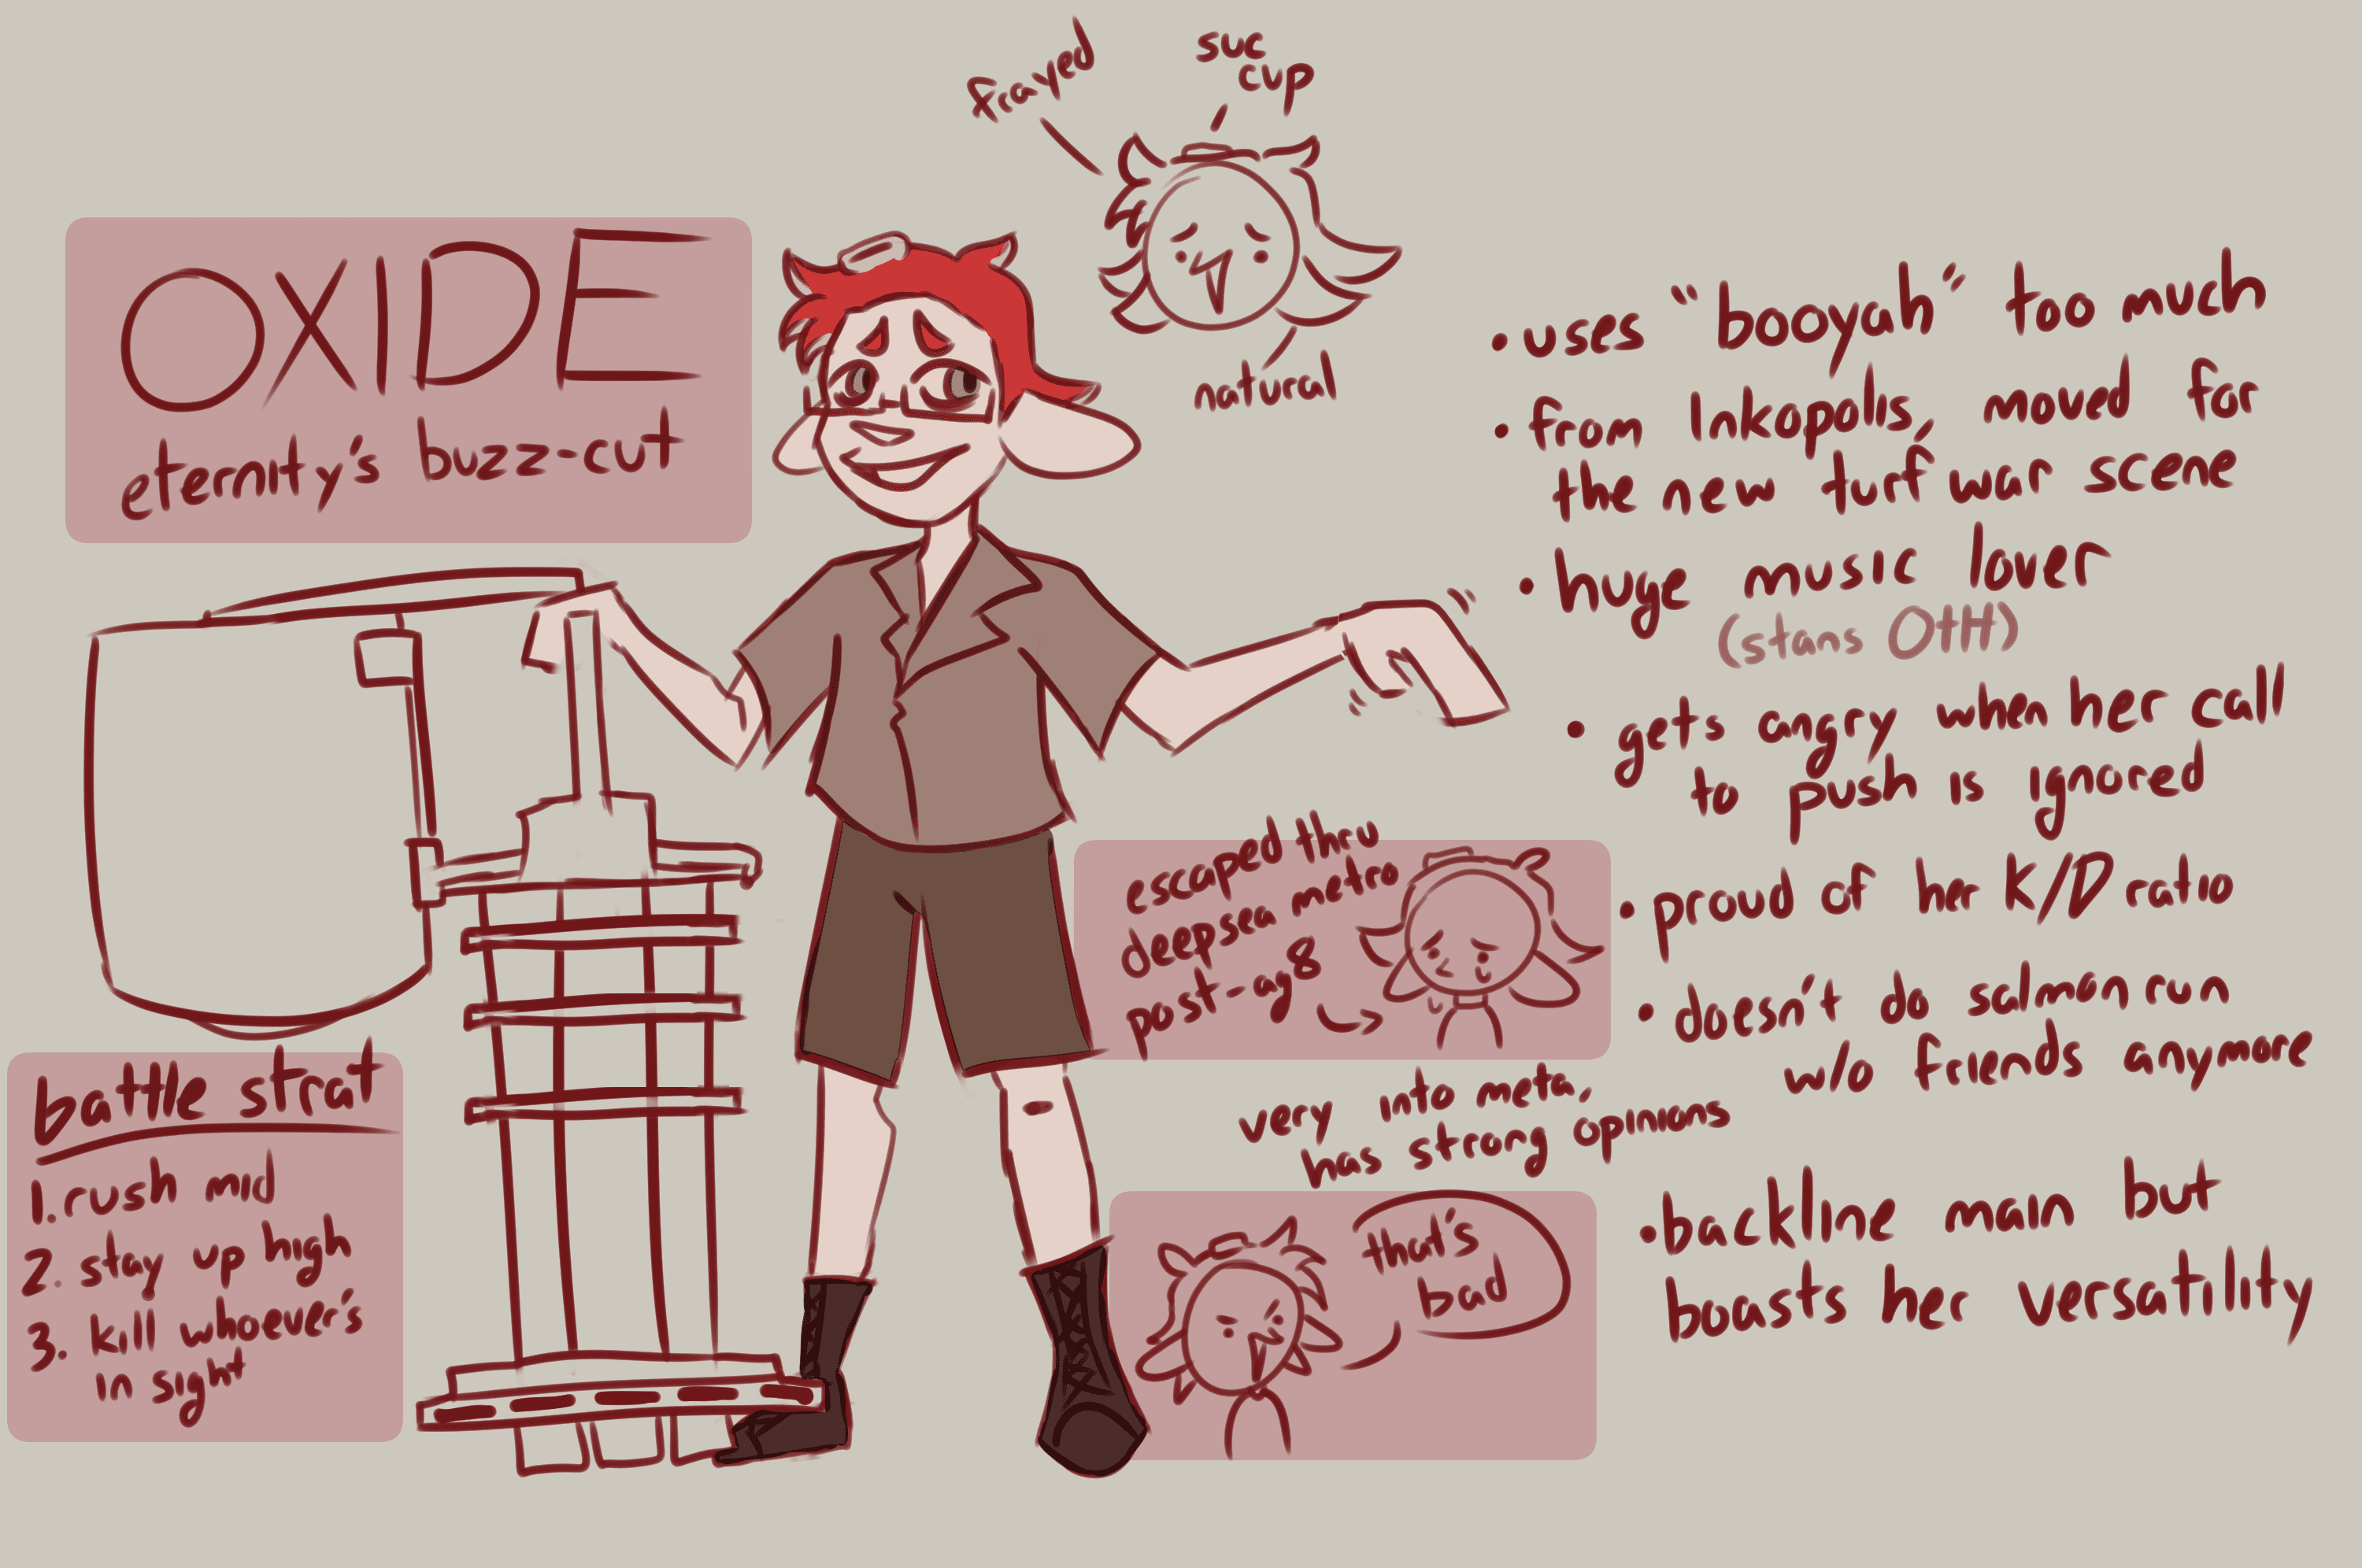 frayed
suc
cup
natural
OXIDE
eternity's buzz-cut
• uses "booyah" too much
• from Inkopolis, moved for
the new turf war scene
• huge music lover
(stans OTH)
• gets angry when her call
to push is ignored
• proud of her K/D ratio
• doesn't do salmon run
w/o friends anymore
• backline main but
boasts her versatility
escaped thru
deepsea metro
post-ag8
very into meta,
has strong opinions
that's
bad
battle strat
1. rush mid
2. stay up high
3. kill whoever's
in sight